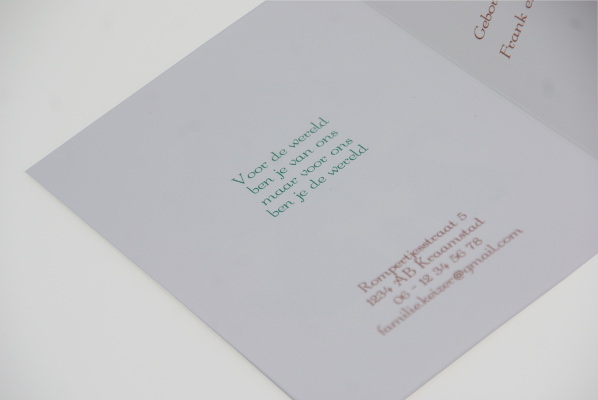 Voor de wereld
ben je van ons
maar voor ons
ben je de wereld
Rompertjesstraat 5
1234 AB Kraamstad
06 - 12 34 56 78
familie.keizer@gmail.com
Frank e